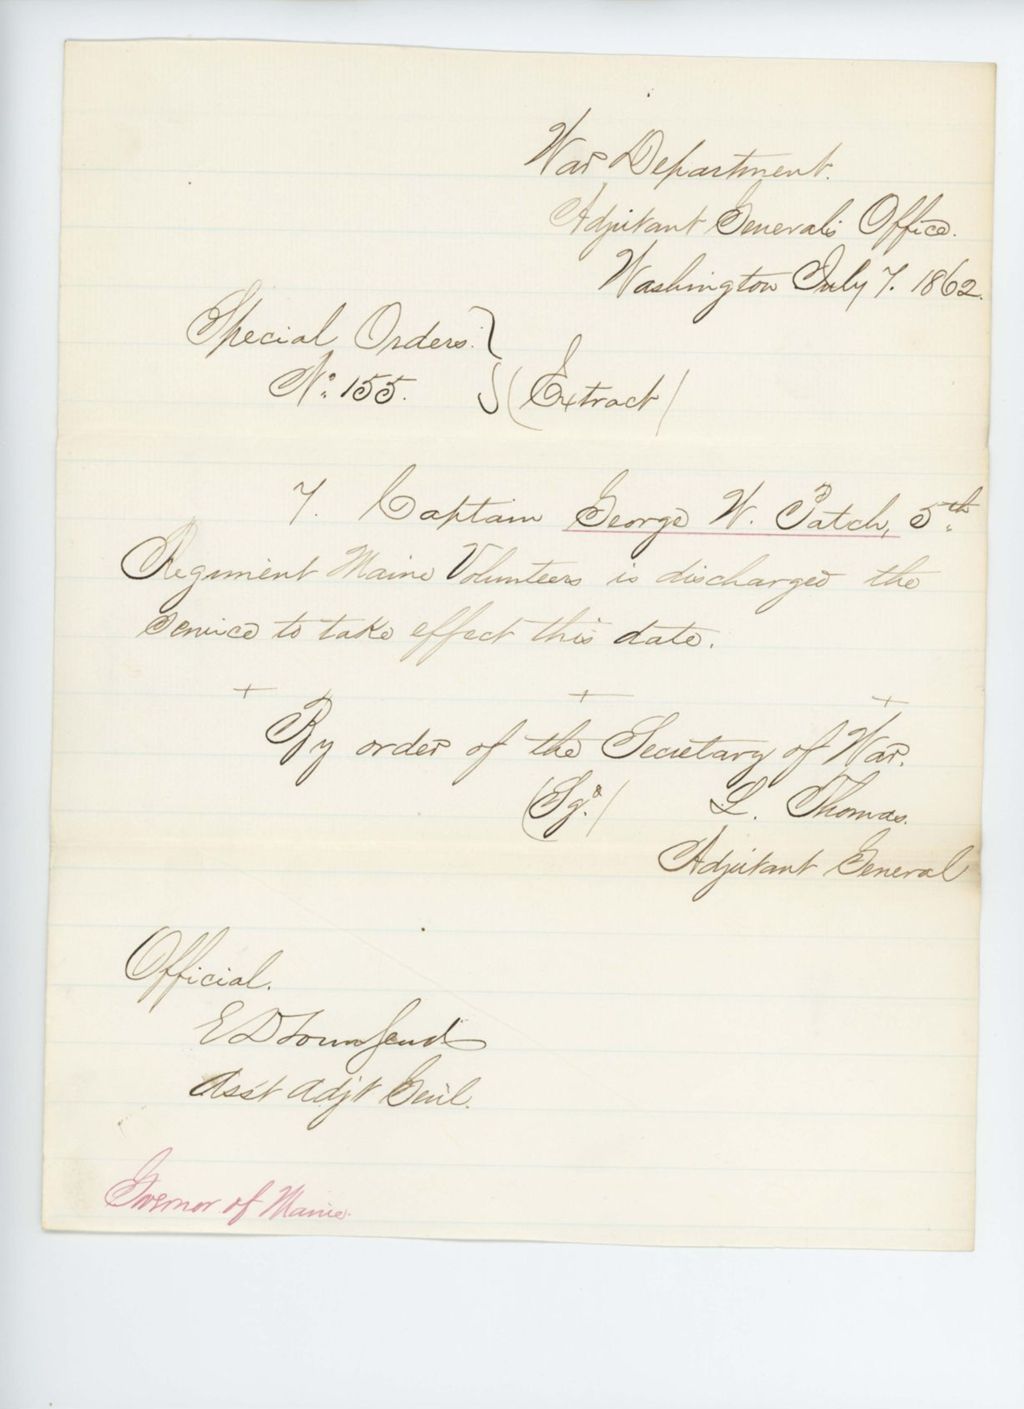 War Department.
Adjutant General's Office.
Washington July 7. 1862.
Special Orders. }
No. 155. } (Extract)
7. Captain George W. Patch, 5th
Regiment Maine Volunteers is discharged the
service to take effect this date.
+ + +
By order of the Secretary of War.
(Sgd.) L. Thomas.
Adjutant General
Official.
E D Townsend
Asst Adjt Genl.
Governor of Maine.